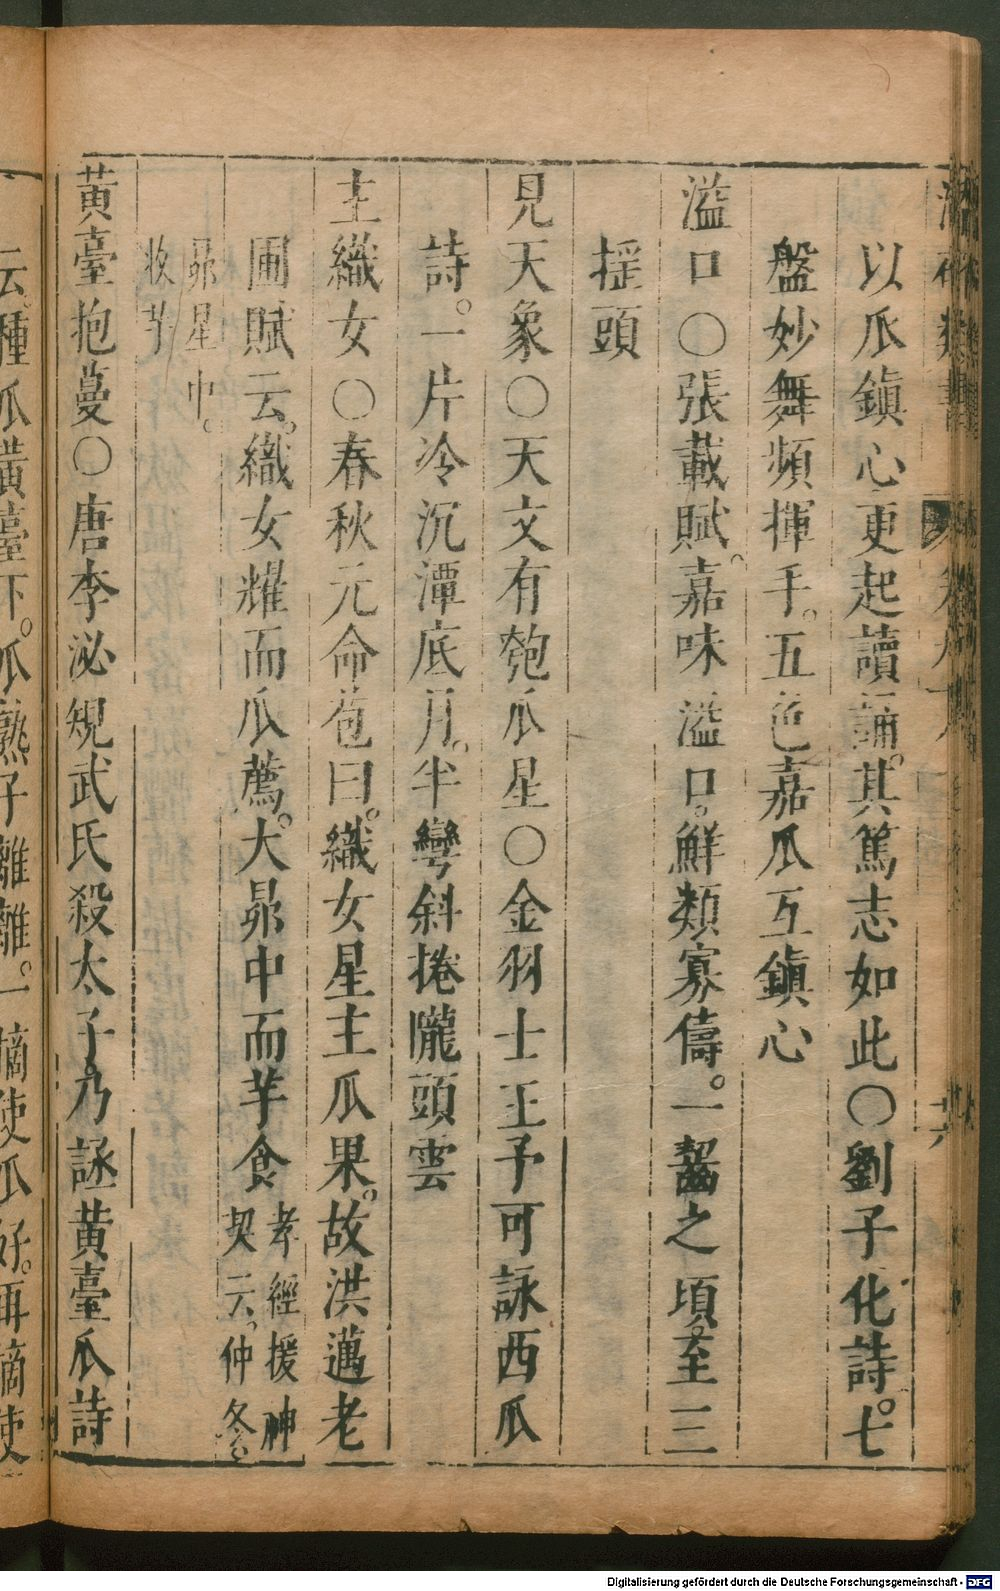 以瓜鎮心更起讀誦。其篤志如此〇劉子化詩。七
盤妙舞頻揮手。五色嘉瓜互鎮心
溢口〇張載賦。嘉味溢口。鮮類寡儔。一齧之頃。至三
揺頭
見天象〇天文有匏瓜星〇金羽士王予可詠西瓜
詩。一片冷沉潭底月。半彎斜捲隴頭雲
主織女〇春秋元命苞曰。織女星主瓜果。故洪邁老
圃賦云。織女耀而瓜薦。大昴中而芋食
孝經援神
契云。仲冬。
昴星中。
收芋
黃臺抱蔓〇唐李泌規武氏殺太子。乃誦黃臺瓜詩
云。種瓜黃臺下。瓜熟子離離。一摘使瓜好。再摘使
Digitalisierung gefördert durch die Deutsche Forschungsgemeinschaft - DFG